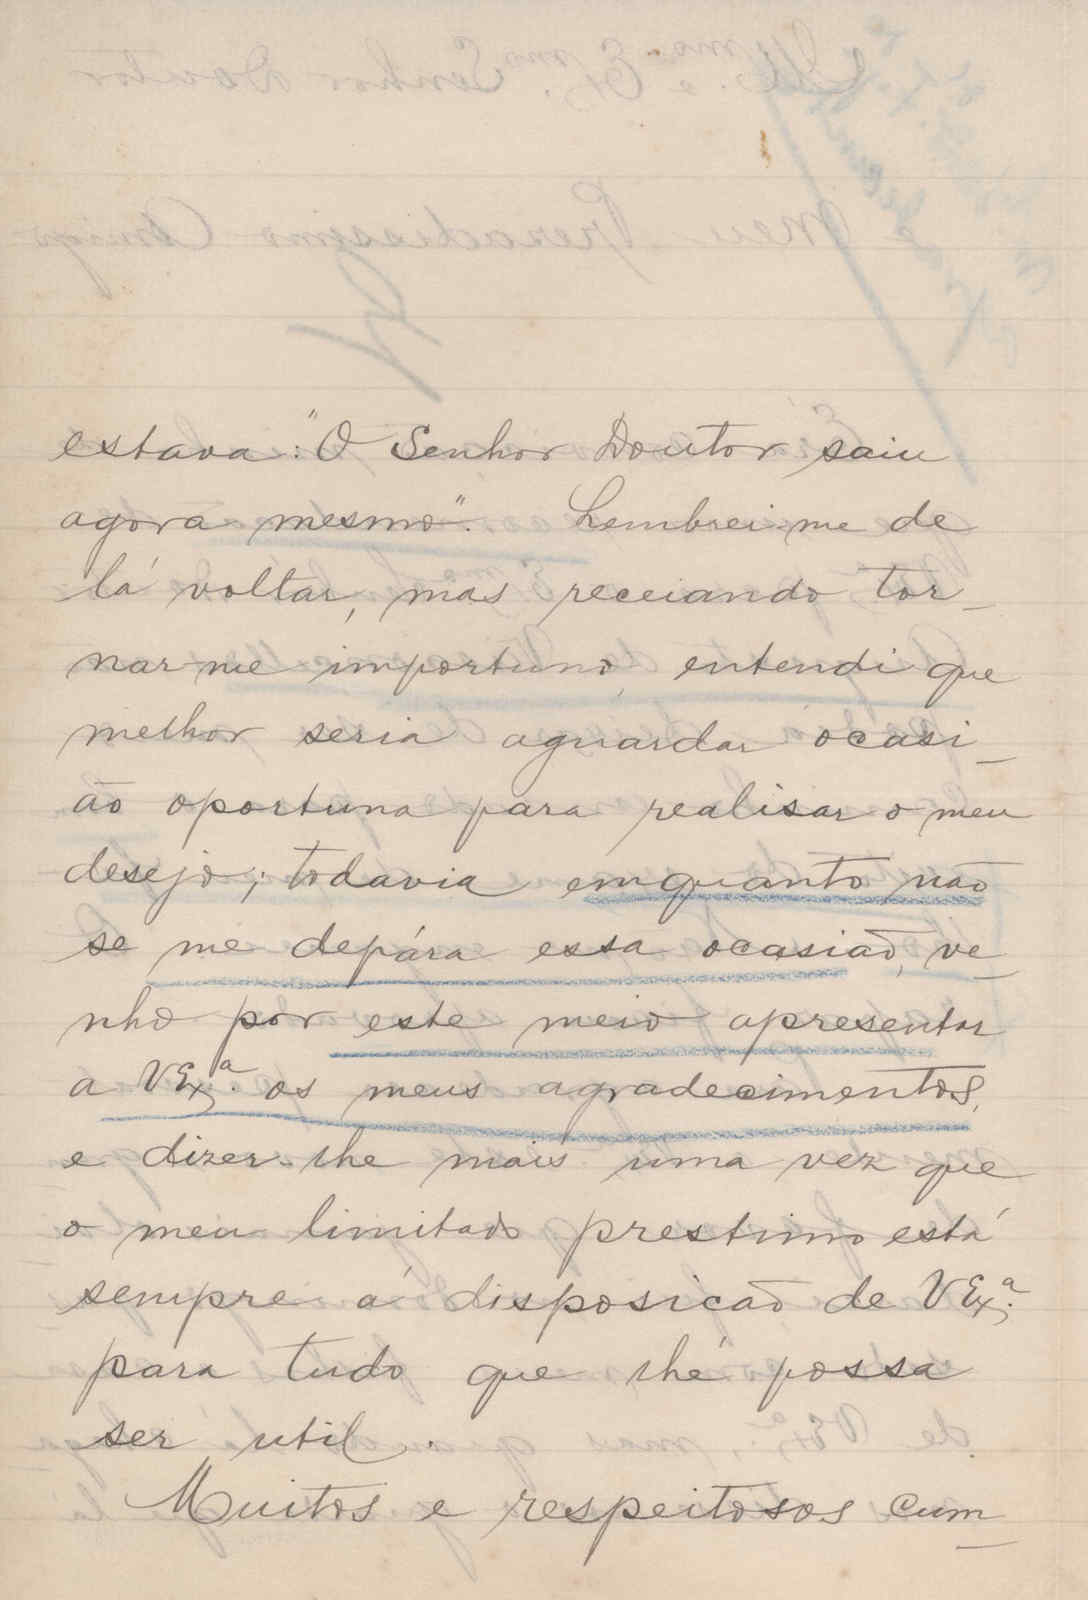 estava: "O Senhor Doutor saiu
agora mesmo". Lembrei-me de
lá voltar, mas receiando tor-
nar-me importuno, entendi que
melhor seria aguardar ocasi-
ão oportuna para realisar o meu
desejo; todavia emquanto não
se me depára essa ocasião, ve-
nho por este meio apresentar
a VEx.ª os meus agradecimentos,
e dizer-lhe mais uma vez que
o meu limitado prestimo está
sempre á disposicão de VEx.ª
para tudo que lhe possa
ser util.
Muitos e respeitosos cum-